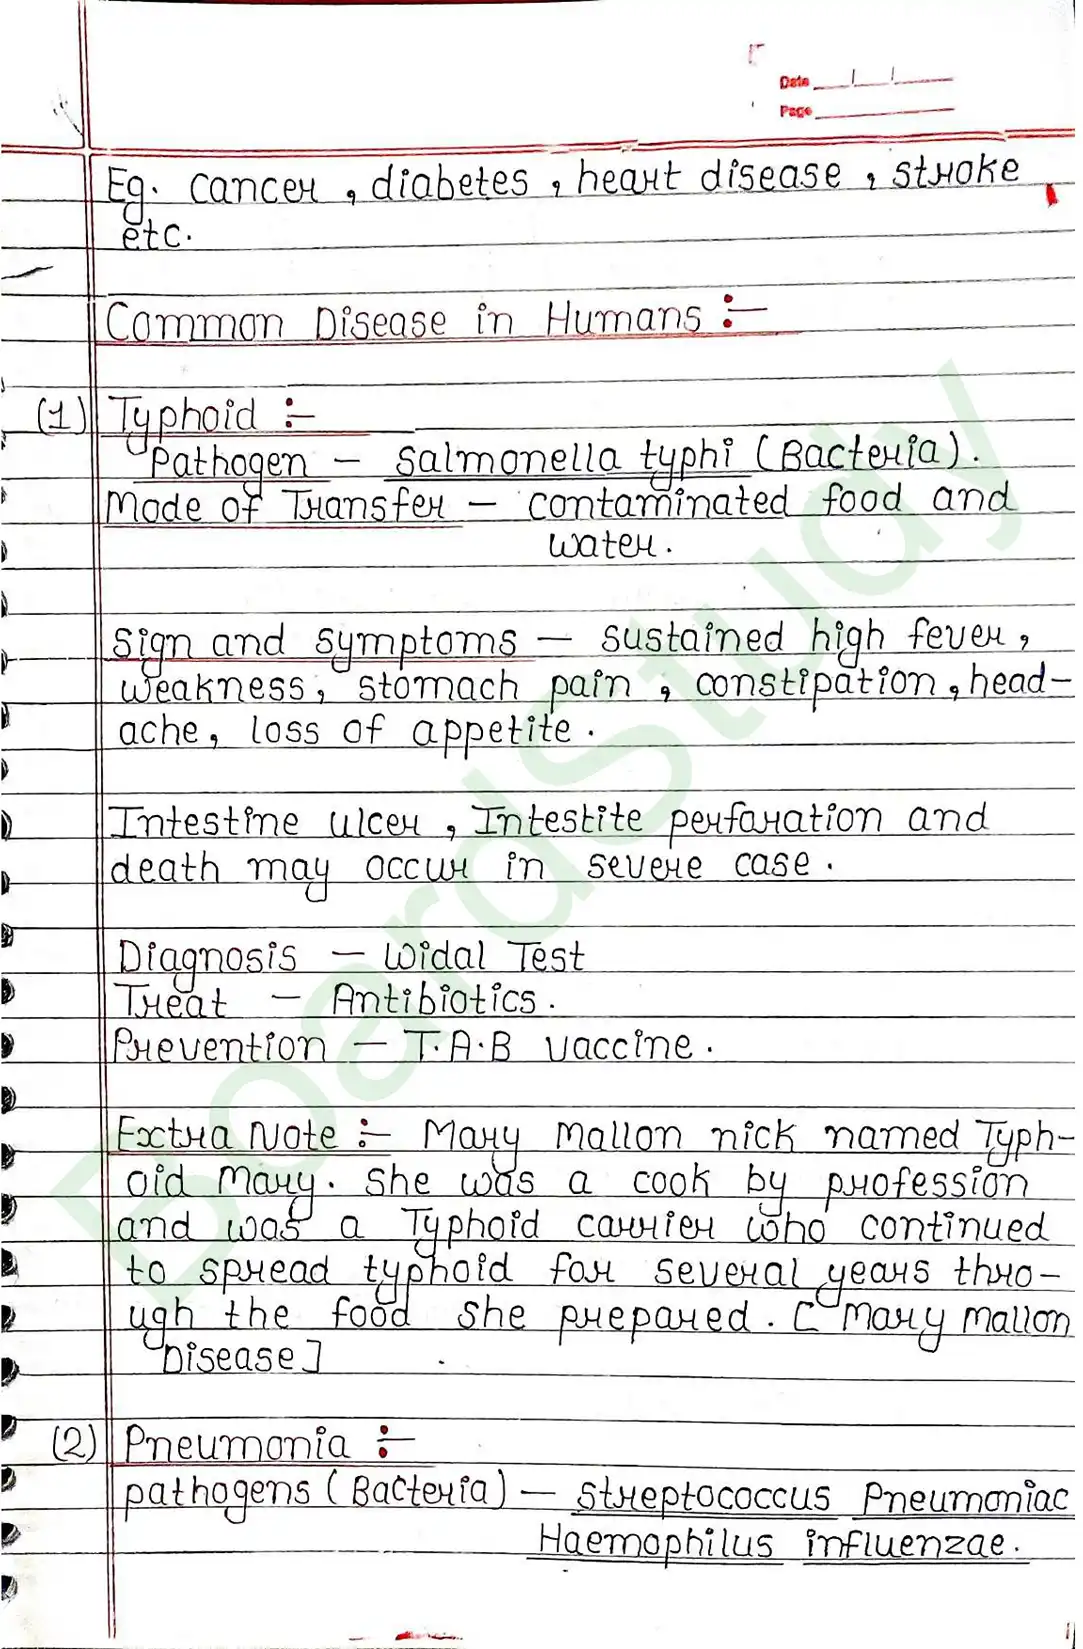 Date
Page
Eg. cancer, diabetes, heart disease, stroke
etc.
Common Disease in Humans :-
(1) Typhoid :-
Pathogen - Salmonella typhi (Bacteria).
Mode of Transfer - contaminated food and
water.
Sign and symptoms - sustained high fever,
weakness, stomach pain, constipation, head-
ache, loss of appetite.
Intestine ulcer, Intestite perforation and
death may occur in severe case.
Diagnosis - Widal Test
Treat - Antibiotics.
Prevention - T.A.B vaccine.
Extra Note :- Mary Mallon nick named Typh-
oid Mary. She was a cook by profession
and was a Typhoid carrier who continued
to spread typhoid for several years thro-
ugh the food she prepared. [Mary Mallon
Disease]
(2) Pneumonia :-
pathogens (Bacteria) - Streptococcus Pneumoniac
Haemophilus influenzae.
BoardStudy